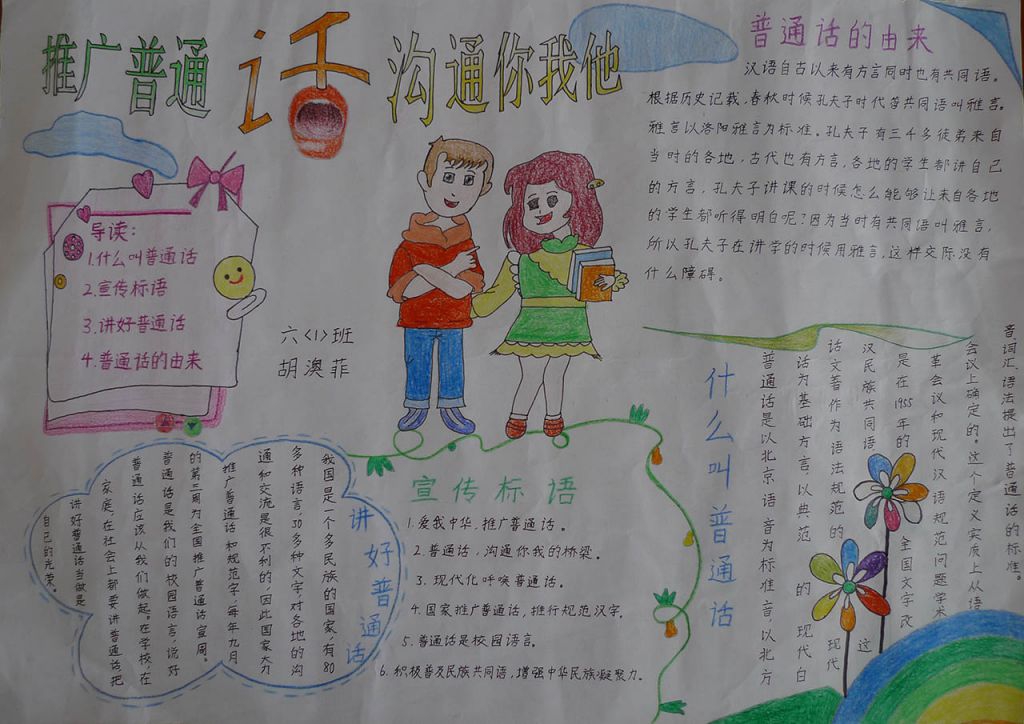 推广普通话 沟通你我他
导读：
1.什么叫普通话
2.宣传标语
3.讲好普通话
4.普通话的由来
六〈1〉班
胡澳菲
普通话的由来
汉语自古以来有方言同时也有共同语。
根据历史记载，春秋时候孔夫子时代管共同语叫雅言。
雅言以洛阳雅言为标准。孔夫子有三千多徒弟来自
当时的各地，古代也有方言，各地的学生都讲自己
的方言，孔夫子讲课的时候怎么能够让来自各地
的学生都听得明白呢？因为当时有共同语叫雅言，
所以孔夫子在讲学的时候用雅言，这样交际没有
什么障碍。
什么叫普通话
普通话是以北京语音为标准音，以北方
话为基础方言，以典范的现代白
话文著作为语法规范的现代
汉民族共同语 这
是在1955年的全国文字改
革会议和现代汉语规范问题学术
会议上确定的。这个定义实质上从语
音词汇、语法提出了普通话的标准。
宣传标语
1.爱我中华，推广普通话。
2.普通话，沟通你我的桥梁。
3.现代化呼唤普通话。
4.国家推广普通话，推行规范汉字．
5.普通话是校园语言。
6.积极普及民族共同语，增强中华民族凝聚力．
讲好普通话
我国是一个多民族的国家，有80
多种语言，30多种文字，对各地的沟
通和交流是很不利的，因此国家大力
推广普通话和规范字，每年九月
的第三周为全国推广普通话宣周。
普通话是我们的校园语言，说好
普通话应该从我们做起。在学校，在
家庭，在社会上都要讲普通话，把
讲好普通话当做是
自己的光荣。